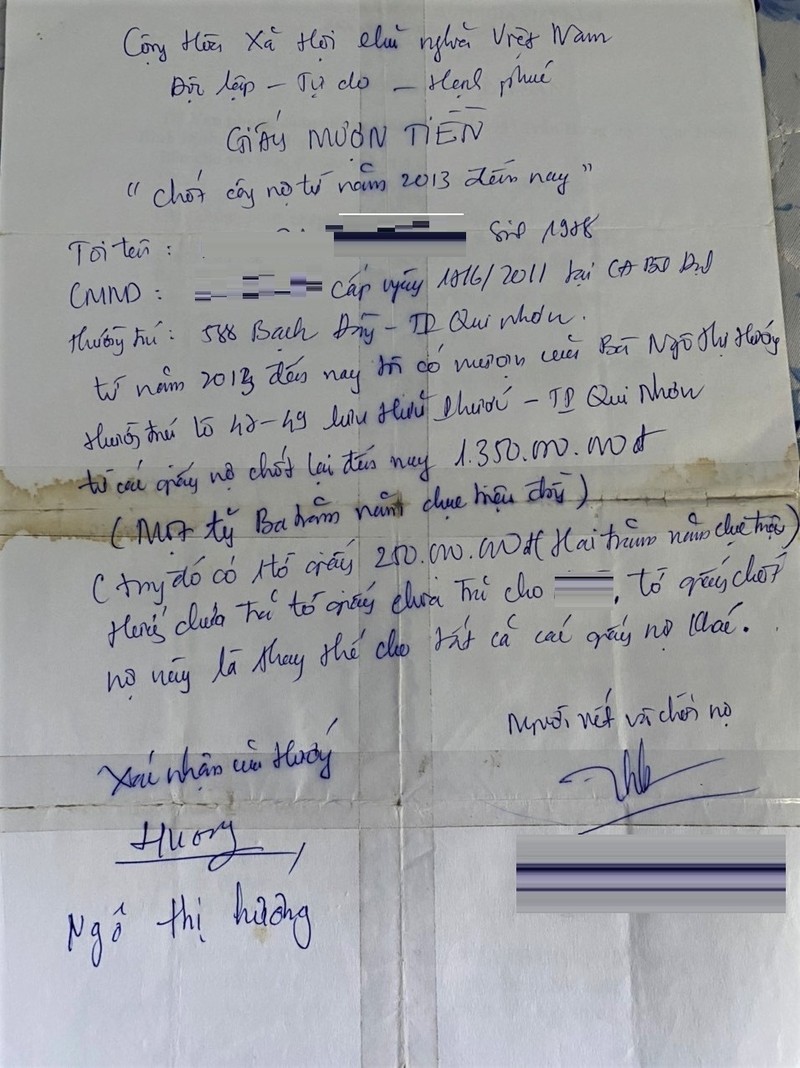 Cộng Hòa Xã Hội chủ nghĩa Việt Nam
Độc lập - Tự do - Hạnh phúc
GIẤY MƯỢN TIỀN
"Chốt công nợ từ năm 2013 đến nay"
Tôi tên : Sinh 1988
CMND : Cấp ngày 18/6/2011 tại CA Bình Định
Thường trú : 588 Bạch Đằng - TP Qui Nhơn.
từ năm 2013 đến nay tôi có mượn của Bà Ngô Thị Hướng
thường trú lô 48-49 Lưu Hữu Phước - TP Qui Nhơn
từ các giấy nợ chốt lại đến nay 1.350.000.000đ
(Một tỷ Ba trăm năm chục triệu đồng)
(trong đó có 1 tờ giấy 250.000.000đ (Hai trăm năm chục triệu)
Hướng chưa trả tờ giấy chưa trả cho , tờ giấy chốt
nợ này là thay thế cho tất cả các giấy nợ khác.
Người viết và chốt nợ
Xác nhận của Hướng
Hương
Ngô thị hương